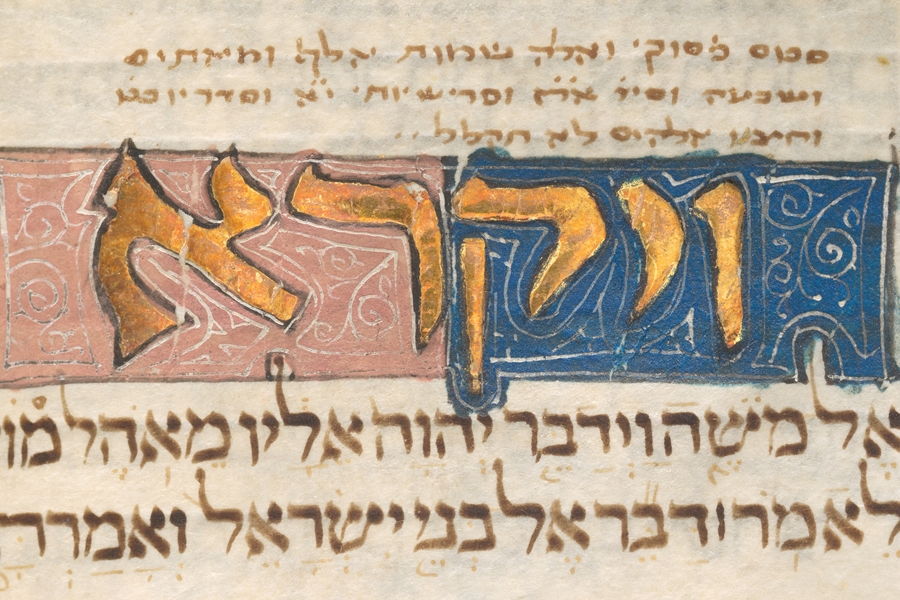 סכום פסוקי׳ ואלה שמות אלף ומאתים
ושבעה וסי׳ אר̈ז̈ ופרשיותי׳ י̈א̈ וסדריו כט
וחציו אלהים לא תקלל ..
ויקרא
אל משה וידבר יהוה אליו מאהל
לאמר׃ דבר אל בני ישראל ואמרת